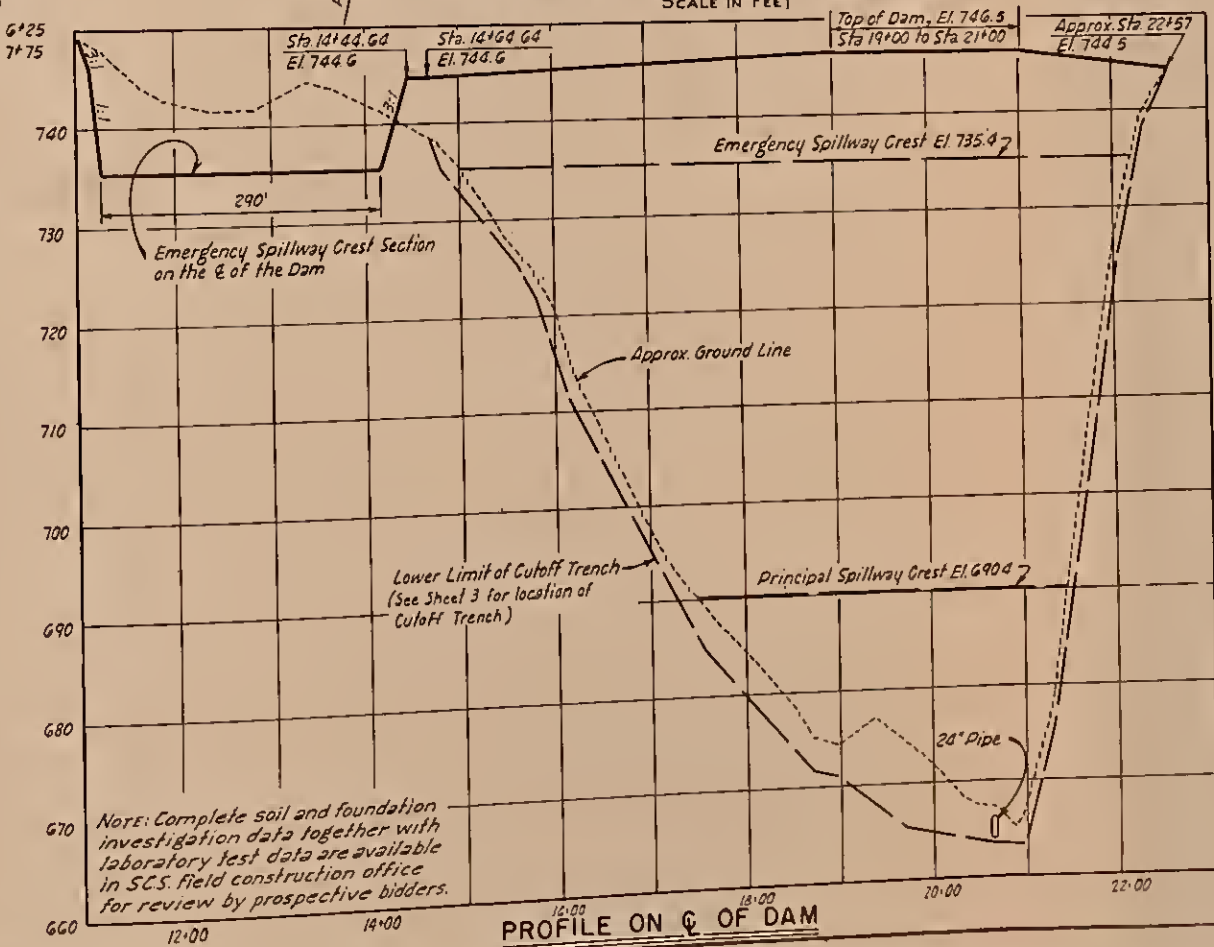 SCALE IN FEET
6+25
7+75
Sta. 14+44.64
El. 744.6
Sta. 14+64 64
El. 744.6
Top of Dam, El. 746.5
Sta 19+00 to Sta 21+00
Approx. Sta. 22+57
El. 744 5
1:1
3:1
740
Emergency Spillway Crest El. 735.4
290'
730
Emergency Spillway Crest Section
on the ℄ of the Dam
720
Approx. Ground Line
710
700
Lower Limit of Cutoff Trench
(See Sheet 3 for location of
Cutoff Trench)
Principal Spillway Crest El. 690 4
690
680
24" Pipe
670
NOTE: Complete soil and foundation
investigation data together with
laboratory test data are available
in S.C.S. field construction office
for review by prospective bidders.
660
12+00
14+00
16+00
18+00
20+00
22+00
PROFILE ON ℄ OF DAM